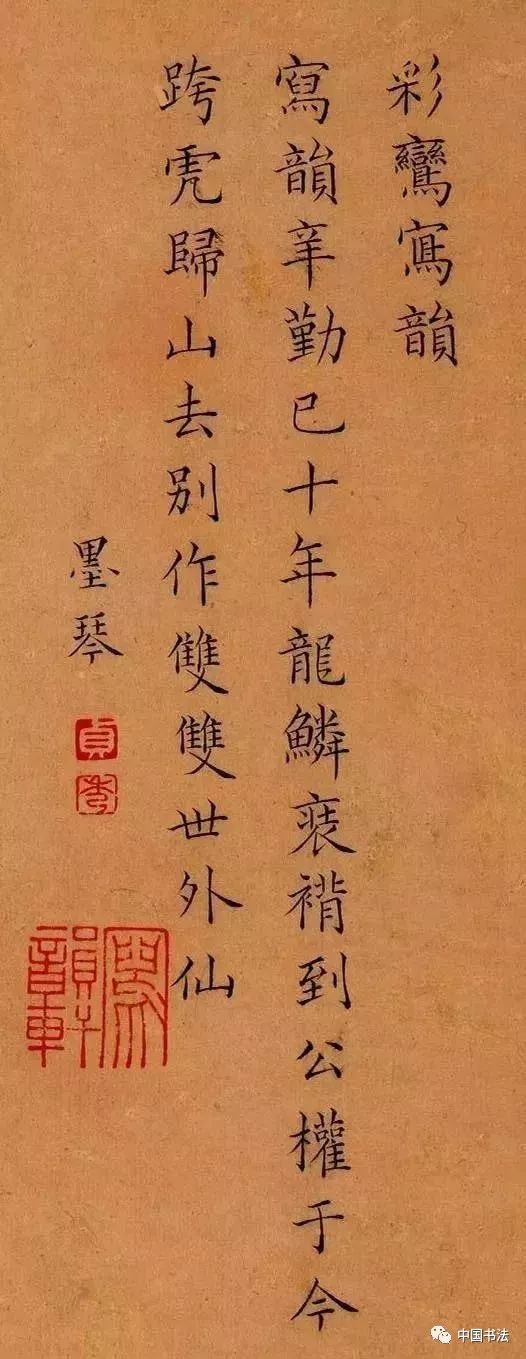 彩鸞寫韻
寫韻辛勤已十年龍鱗裝褙到公權于今
跨虎歸山去別作雙雙世外仙
墨琴
貞
秀
寫韻軒
中国书法